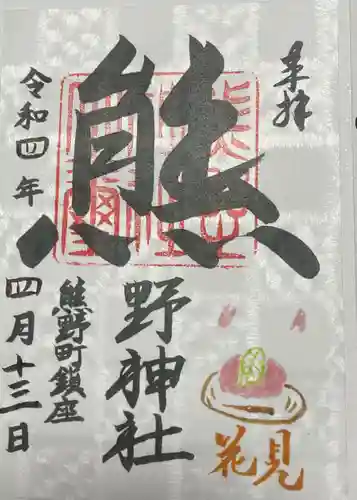 奉拝
熊
野神社
熊野町鎮座
令和四年
四月十三日
花見